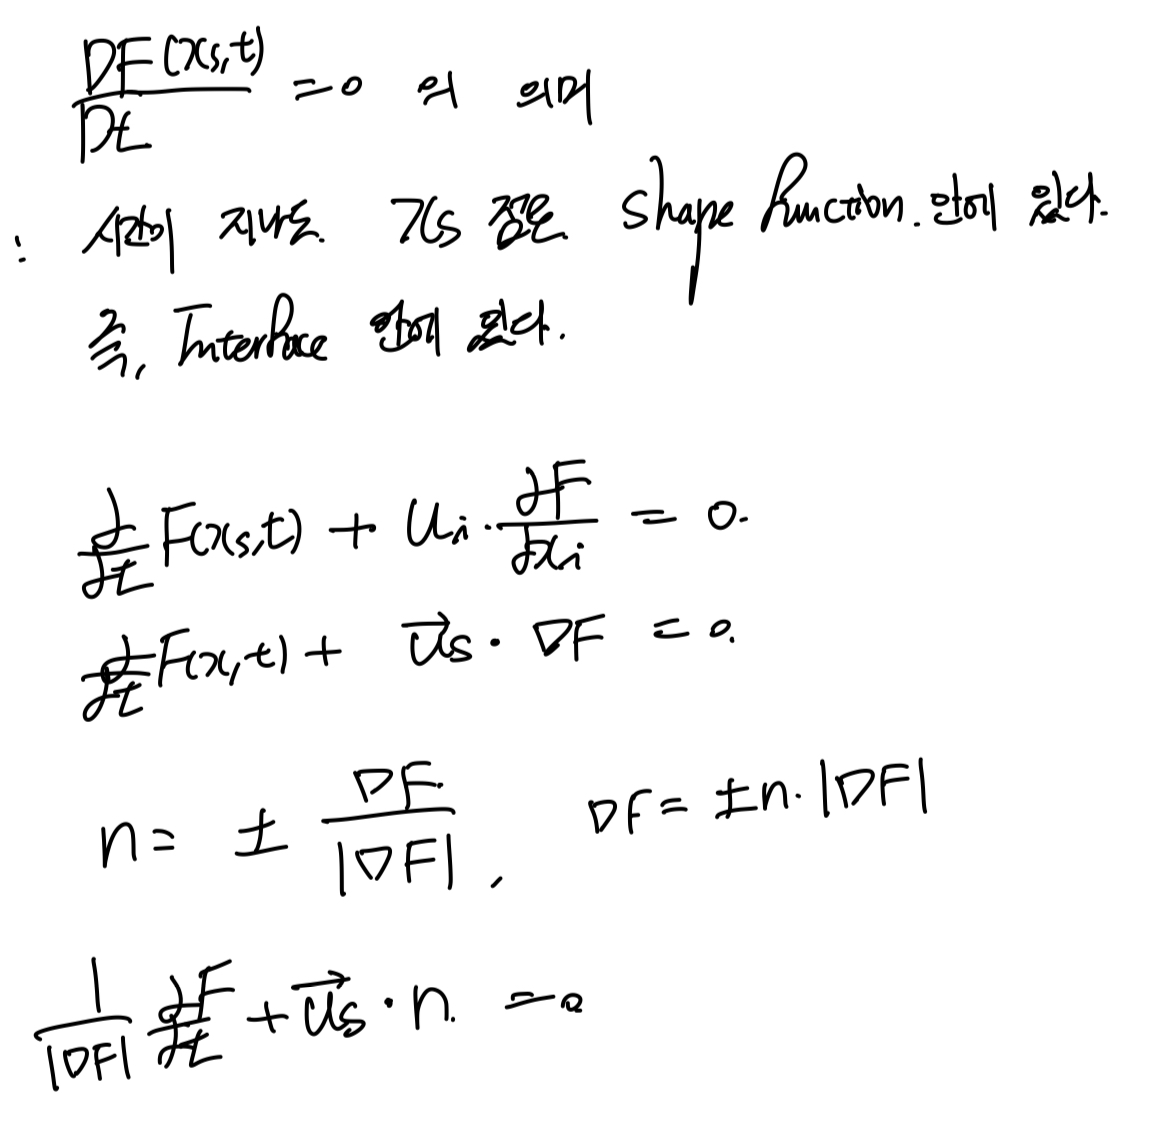 DF(xs,t)/Dt = 0 의 의미
: 시간이 지나도 xs 점은 shape function. 안에 있다.
즉, Interface 안에 있다.
∂/∂t F(xs,t) + Ui · ∂F/∂xi = 0.
∂/∂t F(x,t) + U⃗s · ∇F = 0.
n = ± ∇F/|∇F| , ∇F = ±n · |∇F|
1/|∇F| ∂F/∂t + U⃗s · n. = 0